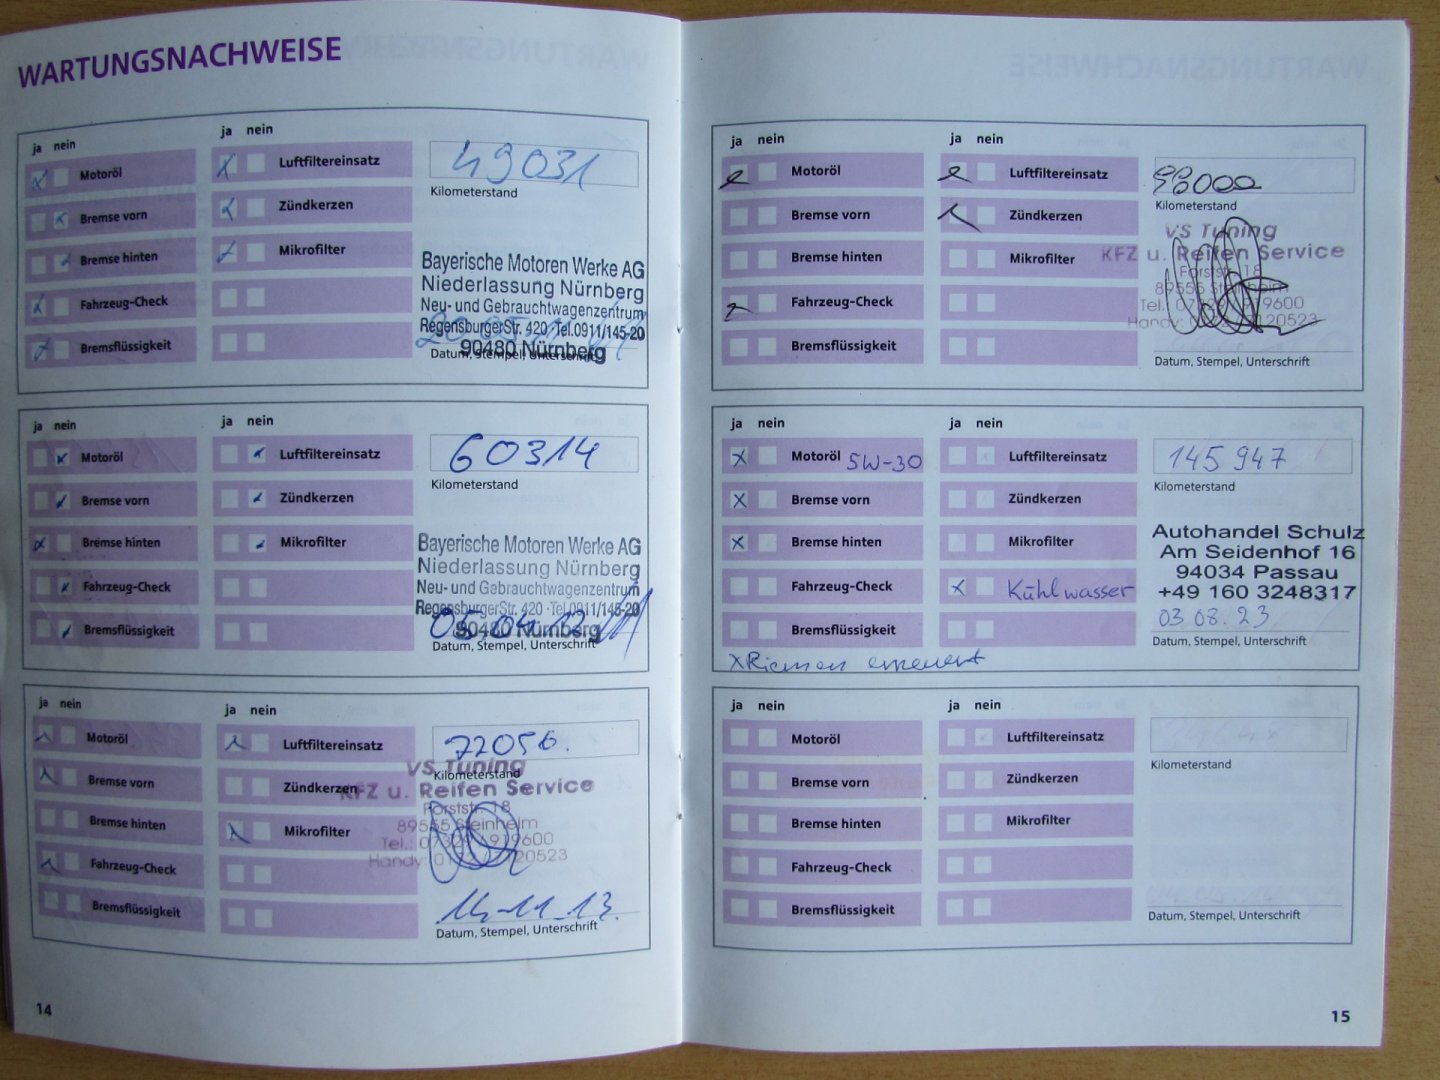 WARTUNGSNACHWEISE
ja nein
ja nein
Motoröl
Luftfiltereinsatz
49031
Bremse vorn
Zündkerzen
Kilometerstand
Bremse hinten
Mikrofilter
Fahrzeug-Check
Bremsflüssigkeit
Bayerische Motoren Werke AG
Niederlassung Nürnberg
Neu- und Gebrauchtwagenzentrum
Regensburger Str. 420 · Tel. 0911/145-20
90480 Nürnberg
Datum, Stempel, Unterschrift
ja nein
ja nein
Motoröl
Luftfiltereinsatz
60314
Bremse vorn
Zündkerzen
Kilometerstand
Bremse hinten
Mikrofilter
Fahrzeug-Check
Bremsflüssigkeit
Bayerische Motoren Werke AG
Niederlassung Nürnberg
Neu- und Gebrauchtwagenzentrum
Regensburger Str. 420 · Tel. 0911/145-20
90480 Nürnberg
05.04.12
Datum, Stempel, Unterschrift
ja nein
ja nein
Motoröl
Luftfiltereinsatz
72056.
Bremse vorn
Zündkerzen
Kilometerstand
Bremse hinten
Mikrofilter
Fahrzeug-Check
Bremsflüssigkeit
VS Tuning
KFZ u. Reifen Service
Forststr. 18
89555 Steinheim
14-11-13.
Datum, Stempel, Unterschrift
14
ja nein
ja nein
Motoröl
Luftfiltereinsatz
Bremse vorn
Zündkerzen
Kilometerstand
Bremse hinten
Mikrofilter
Fahrzeug-Check
Bremsflüssigkeit
VS Tuning
KFZ u. Reifen Service
Forststr. 18
89555 Steinheim
Datum, Stempel, Unterschrift
ja nein
ja nein
Motoröl 5W-30
Luftfiltereinsatz
145 947
Bremse vorn
Zündkerzen
Kilometerstand
Bremse hinten
Mikrofilter
Fahrzeug-Check
Kühlwasser
Bremsflüssigkeit
Autohandel Schulz
Am Seidenhof 16
94034 Passau
+49 160 3248317
03 08. 23
Datum, Stempel, Unterschrift
x Riemen erneuert
ja nein
ja nein
Motoröl
Luftfiltereinsatz
Bremse vorn
Zündkerzen
Kilometerstand
Bremse hinten
Mikrofilter
Fahrzeug-Check
Bremsflüssigkeit
Datum, Stempel, Unterschrift
15